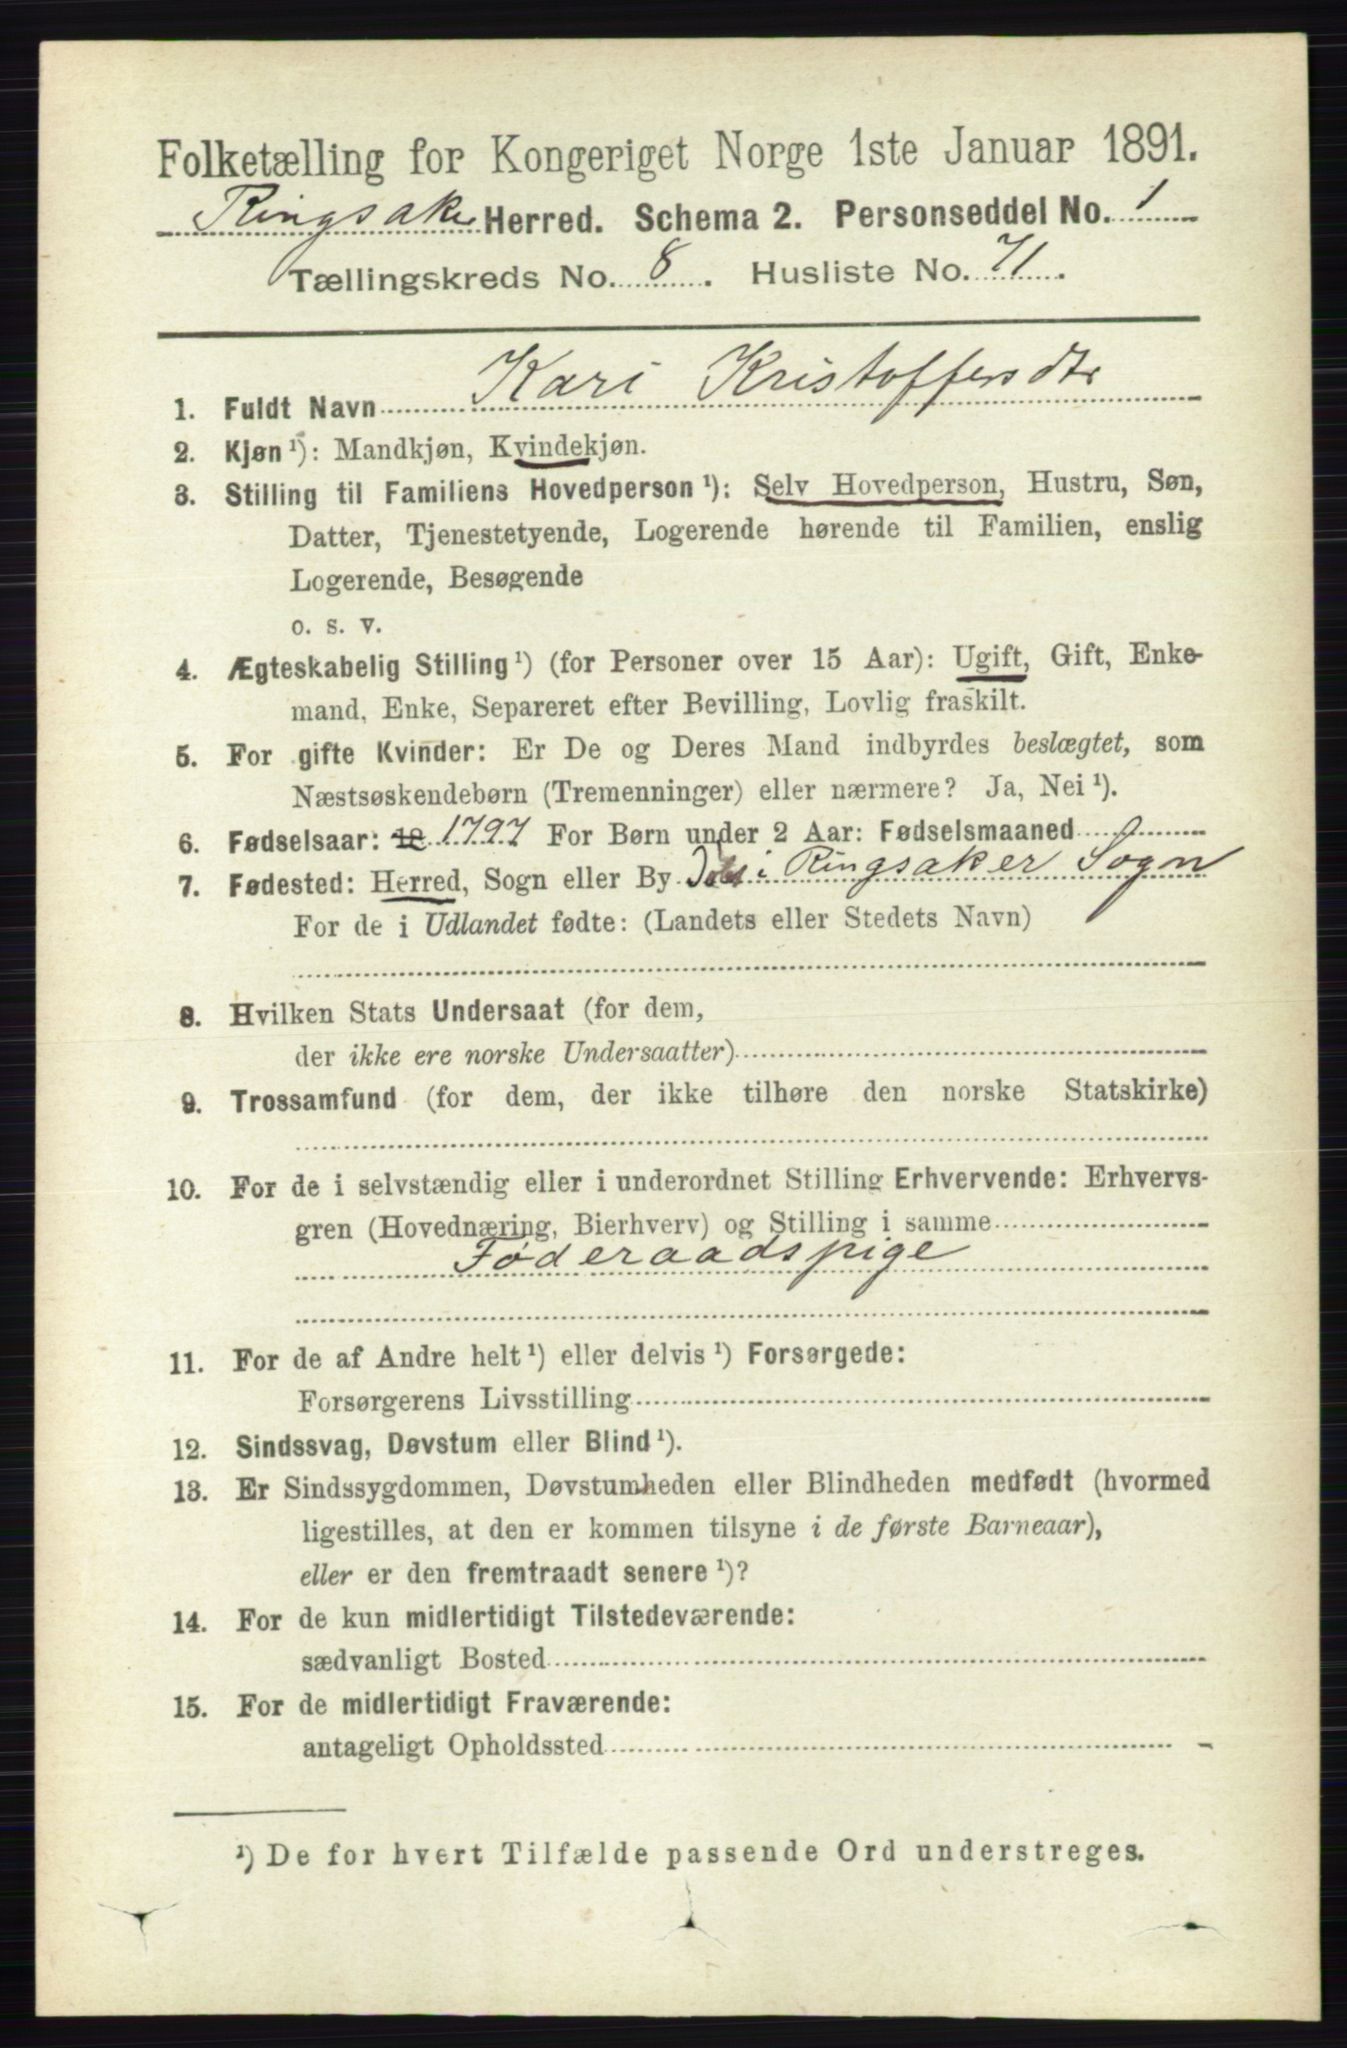 Folketælling for Kongeriget Norge 1ste Januar 1891.
Ringsaker Herred. Schema 2. Personseddel No. 1
Tællingskreds No. 8. Husliste No. 71.
Kari Kristoffersdtr
1. Fuldt Navn
2. Kjøn ¹): Mandkjøn, Kvindekjøn.
3. Stilling til Familiens Hovedperson ¹): Selv Hovedperson, Hustru, Søn,
Datter, Tjenestetyende, Logerende hørende til Familien, enslig
Logerende, Besøgende
o. s. v.
4. Ægteskabelig Stilling ¹) (for Personer over 15 Aar): Ugift, Gift, Enke-
mand, Enke, Separeret efter Bevilling, Lovlig fraskilt.
5. For gifte Kvinder: Er De og Deres Mand indbyrdes beslægtet, som
Næstsøskendebørn (Tremenninger) eller nærmere? Ja, Nei ¹).
6. Fødselsaar: 18 1797 For Børn under 2 Aar: Fødselsmaaned
7. Fødested: Herred, Sogn eller By i Ringsaker Sogn
For de i Udlandet fødte: (Landets eller Stedets Navn)
8. Hvilken Stats Undersaat (for dem,
der ikke ere norske Undersaatter)
9. Trossamfund (for dem, der ikke tilhøre den norske Statskirke)
10. For de i selvstændig eller i underordnet Stilling Erhvervende: Erhvervs-
gren (Hovednæring, Bierhverv) og Stilling i samme
Føderaadspige
11. For de af Andre helt ¹) eller delvis ¹) Forsørgede:
Forsørgerens Livsstilling
12. Sindssvag, Døvstum eller Blind ¹).
13. Er Sindssygdommen, Døvstumheden eller Blindheden medfødt (hvormed
ligestilles, at den er kommen tilsyne i de første Barneaar),
eller er den fremtraadt senere ¹)?
14. For de kun midlertidigt Tilstedeværende:
sædvanligt Bosted
15. For de midlertidigt Fraværende:
antageligt Opholdssted
¹) De for hvert Tilfælde passende Ord understreges.